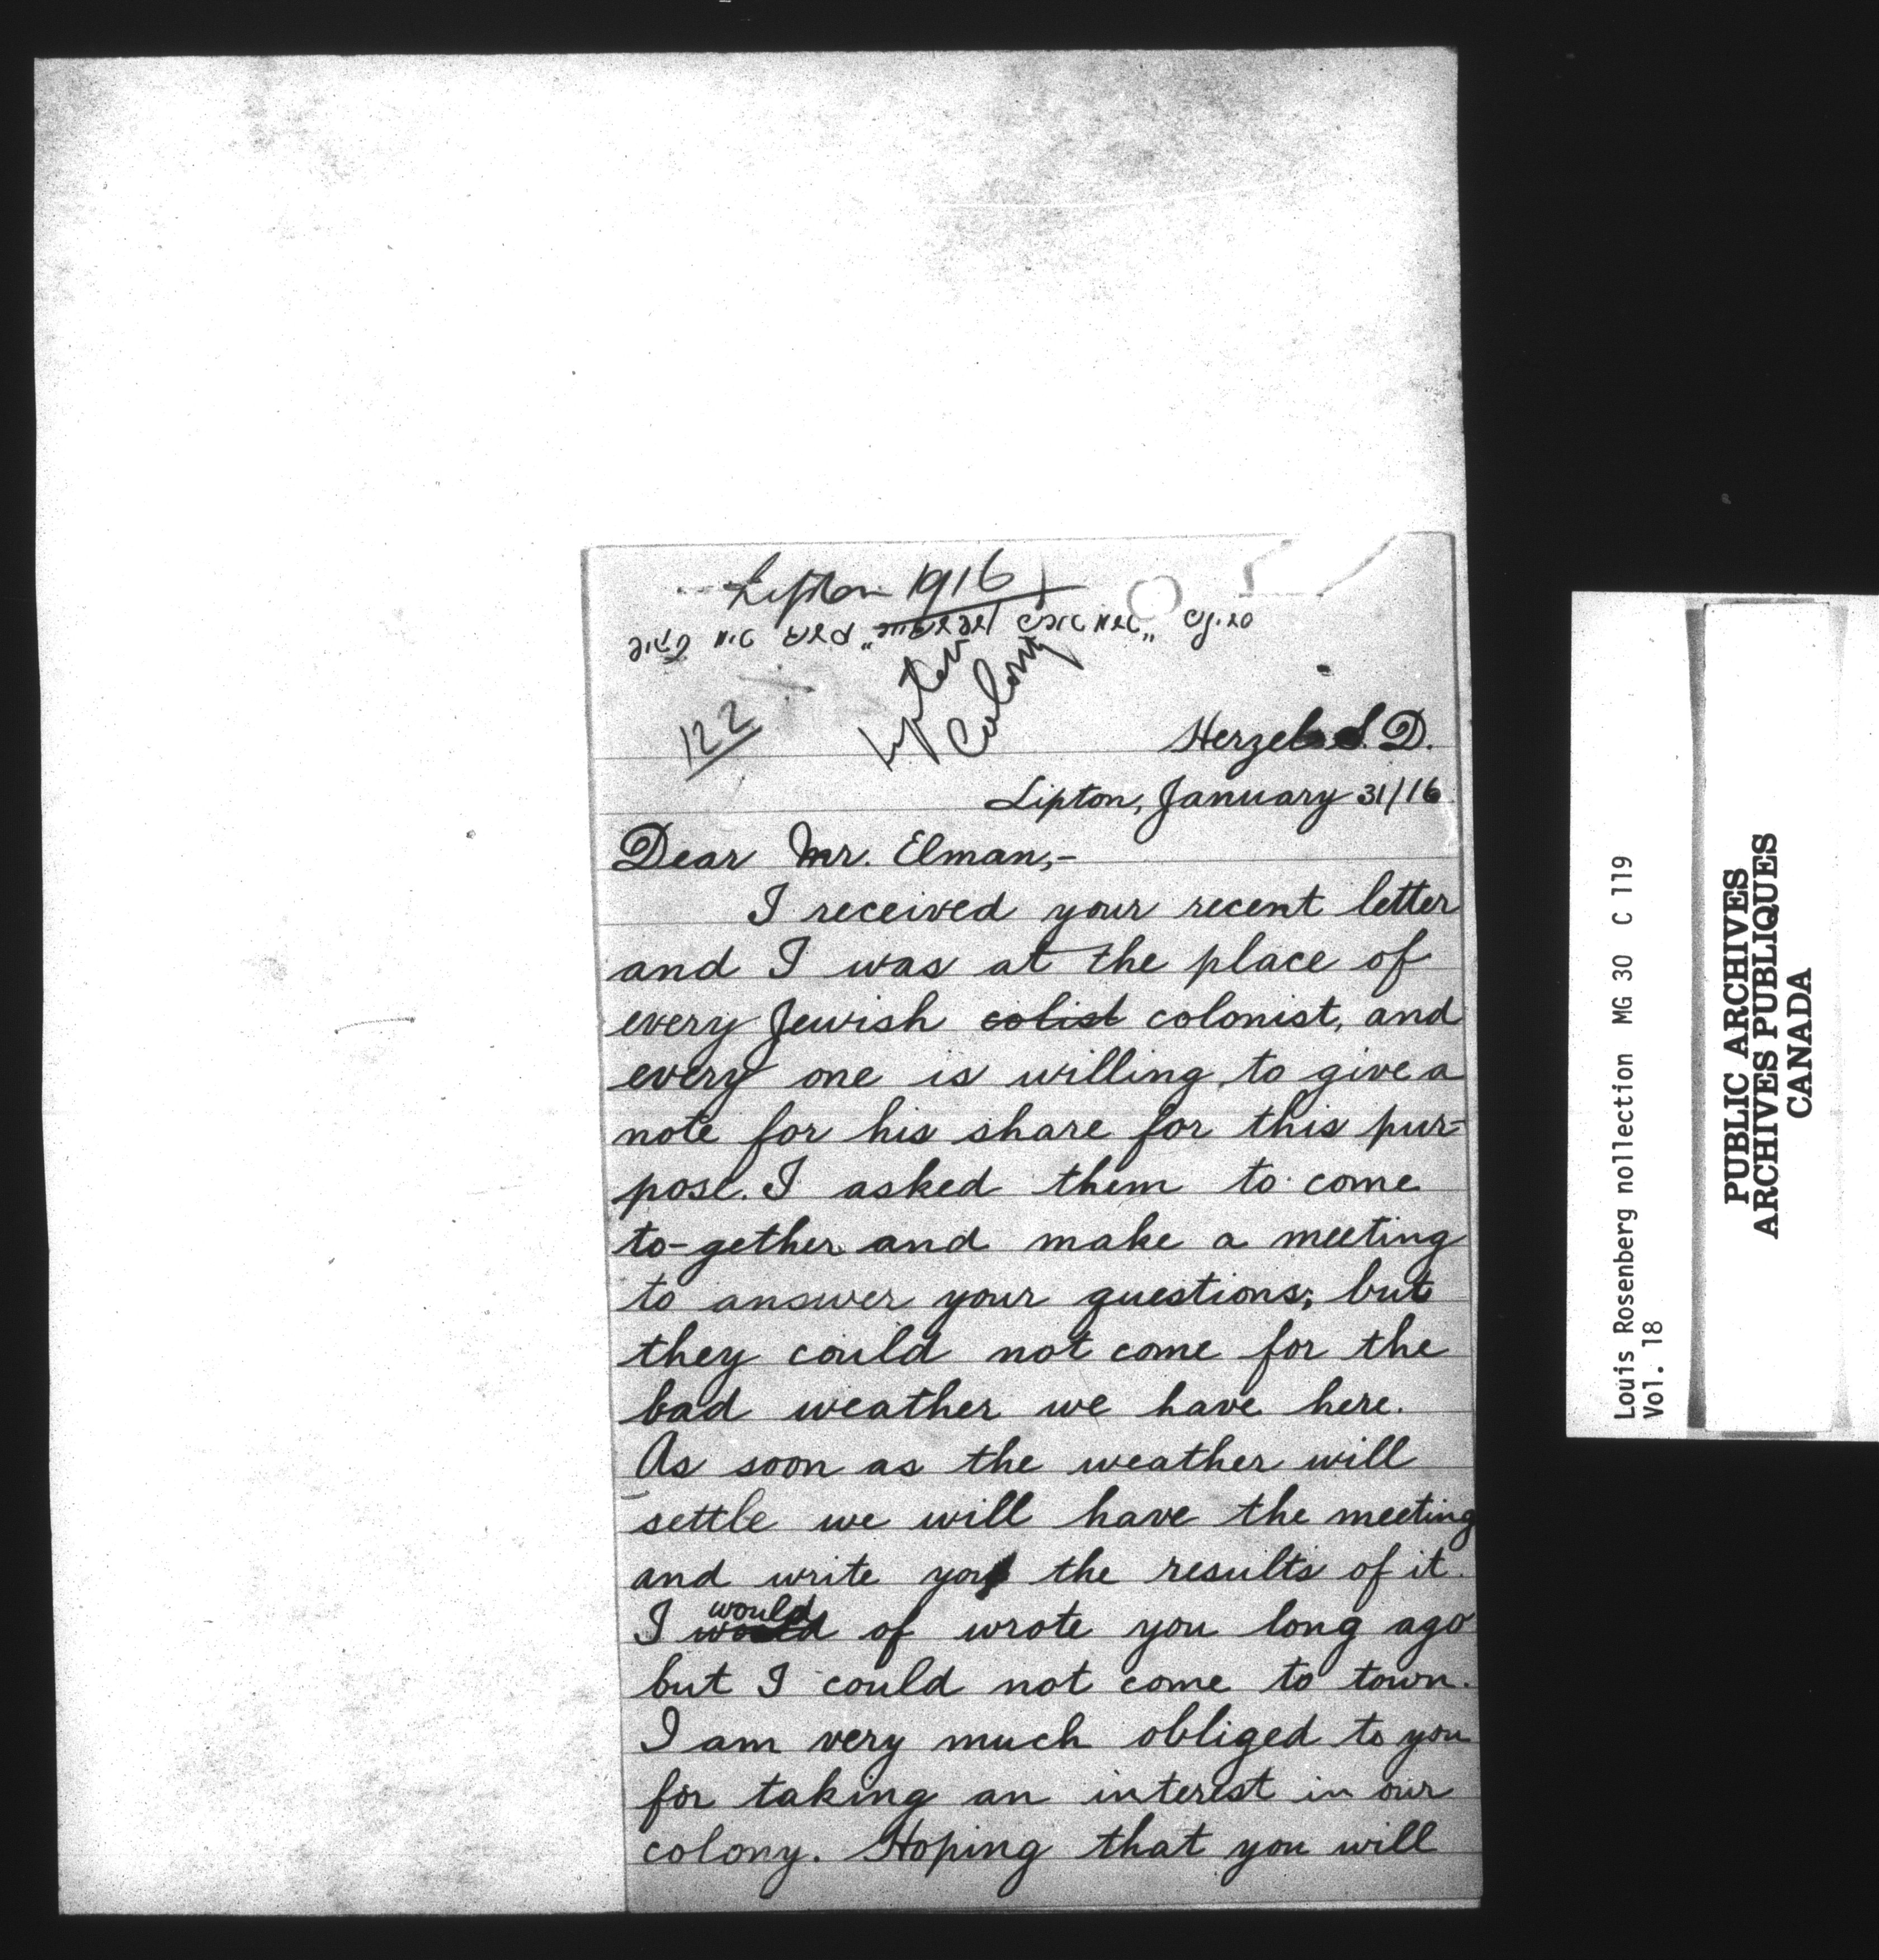 Lipton 1916
Lipton
Colony
122
Herzel S. D.
Lipton, January 31/16
Dear Mr. Elman,-
I received your recent letter
and I was at the place of
every Jewish colist colonist, and
every one is willing to give a
note for his share for this pur=
pose. I asked them to come
to-gether and make a meeting
to answer your questions; but
they could not come for the
bad weather we have here.
As soon as the weather will
settle we will have the meeting
and write you the results of it.
I would would of wrote you long ago
but I could not come to town.
I am very much obliged to you
for taking an interest in our
colony. Hoping that you will
Louis Rosenberg nollection MG 30 C 119
Vol. 18
PUBLIC ARCHIVES
ARCHIVES PUBLIQUES
CANADA